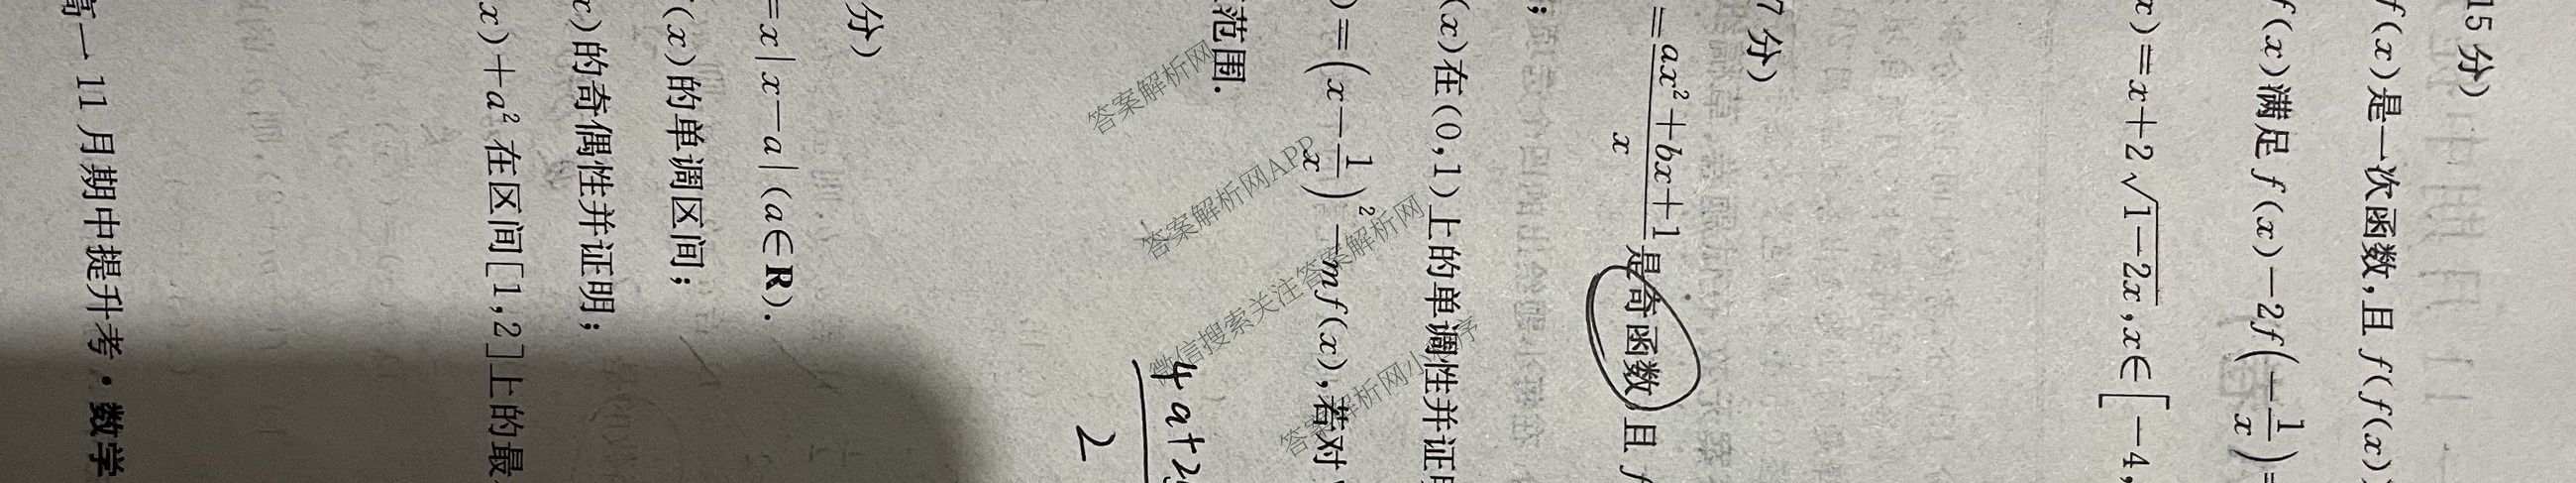 15分)
f(x)是一次函数,且 f(f(x)
f(x)满足 f(x)-2f(-1/x)=
x)=x+2√(1-2x),x∈[-4,
7分)
=(ax²+bx+1)/x 是奇函数,且 f
;
(x)在(0,1)上的单调性并证明
)=(x-1/x)²-mf(x),若对
范围.
4a+2
2
分)
=x|x-a|(a∈R).
(x)的单调区间;
x)的奇偶性并证明;
x)+a² 在区间[1,2]上的最
高一11月期中提升考·数学
答案解析网
答案解析网APP
微信搜索关注答案解析网
答案解析网小程序